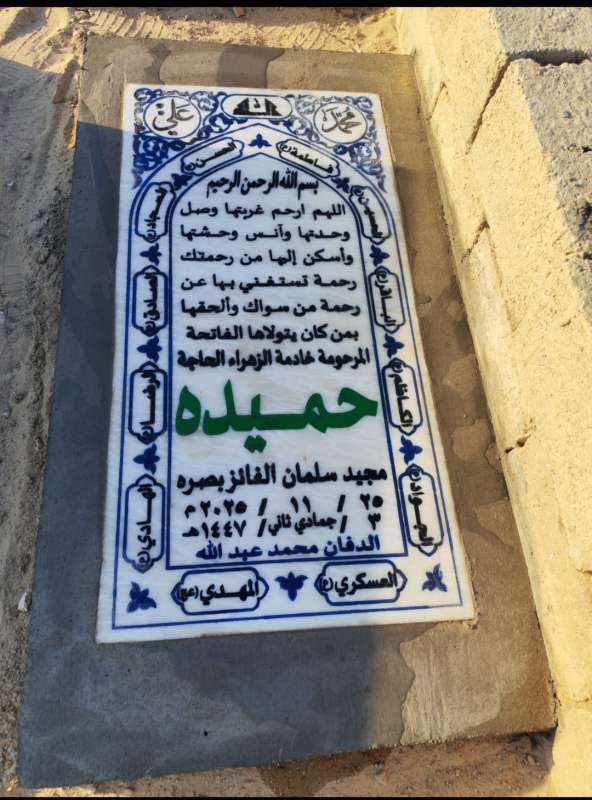 محمد
الله
علي
فاطمة (ع)
الحسن (ع)
الحسين (ع)
السجاد (ع)
الباقر (ع)
الصادق (ع)
الكاظم (ع)
الرضا (ع)
الجواد (ع)
الهادي (ع)
العسكري (ع)
المهدي (عج)
بسم الله الرحمن الرحيم
اللهم ارحم غربتها وصل
وحدتها وآنس وحشتها
وأسكن إليها من رحمتك
رحمة تستغني بها عن
رحمة من سواك وألحقها
بمن كان يتولاها الفاتحة
المرحومة خادمة الزهراء الحاجة
حميده
مجيد سلمان الفائز بصره
٢٥ / ١١ / ٢٠٢٥ م
٣ / جمادي ثاني / ١٤٤٧ هـ
الدفان محمد عبد الله